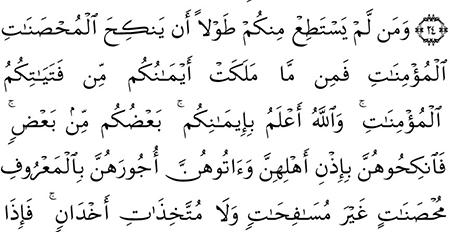 ﴿٢٤﴾ وَمَن لَّمْ يَسْتَطِعْ مِنكُمْ طَوْلًا أَن يَنكِحَ ٱلْمُحْصَنَٰتِ
ٱلْمُؤْمِنَٰتِ فَمِن مَّا مَلَكَتْ أَيْمَٰنُكُم مِّن فَتَيَٰتِكُمُ
ٱلْمُؤْمِنَٰتِ ۚ وَٱللَّهُ أَعْلَمُ بِإِيمَٰنِكُم ۚ بَعْضُكُم مِّنۢ بَعْضٍ ۚ
فَٱنكِحُوهُنَّ بِإِذْنِ أَهْلِهِنَّ وَءَاتُوهُنَّ أُجُورَهُنَّ بِٱلْمَعْرُوفِ
مُحْصَنَٰتٍ غَيْرَ مُسَٰفِحَٰتٍ وَلَا مُتَّخِذَٰتِ أَخْدَانٍ ۚ فَإِذَا